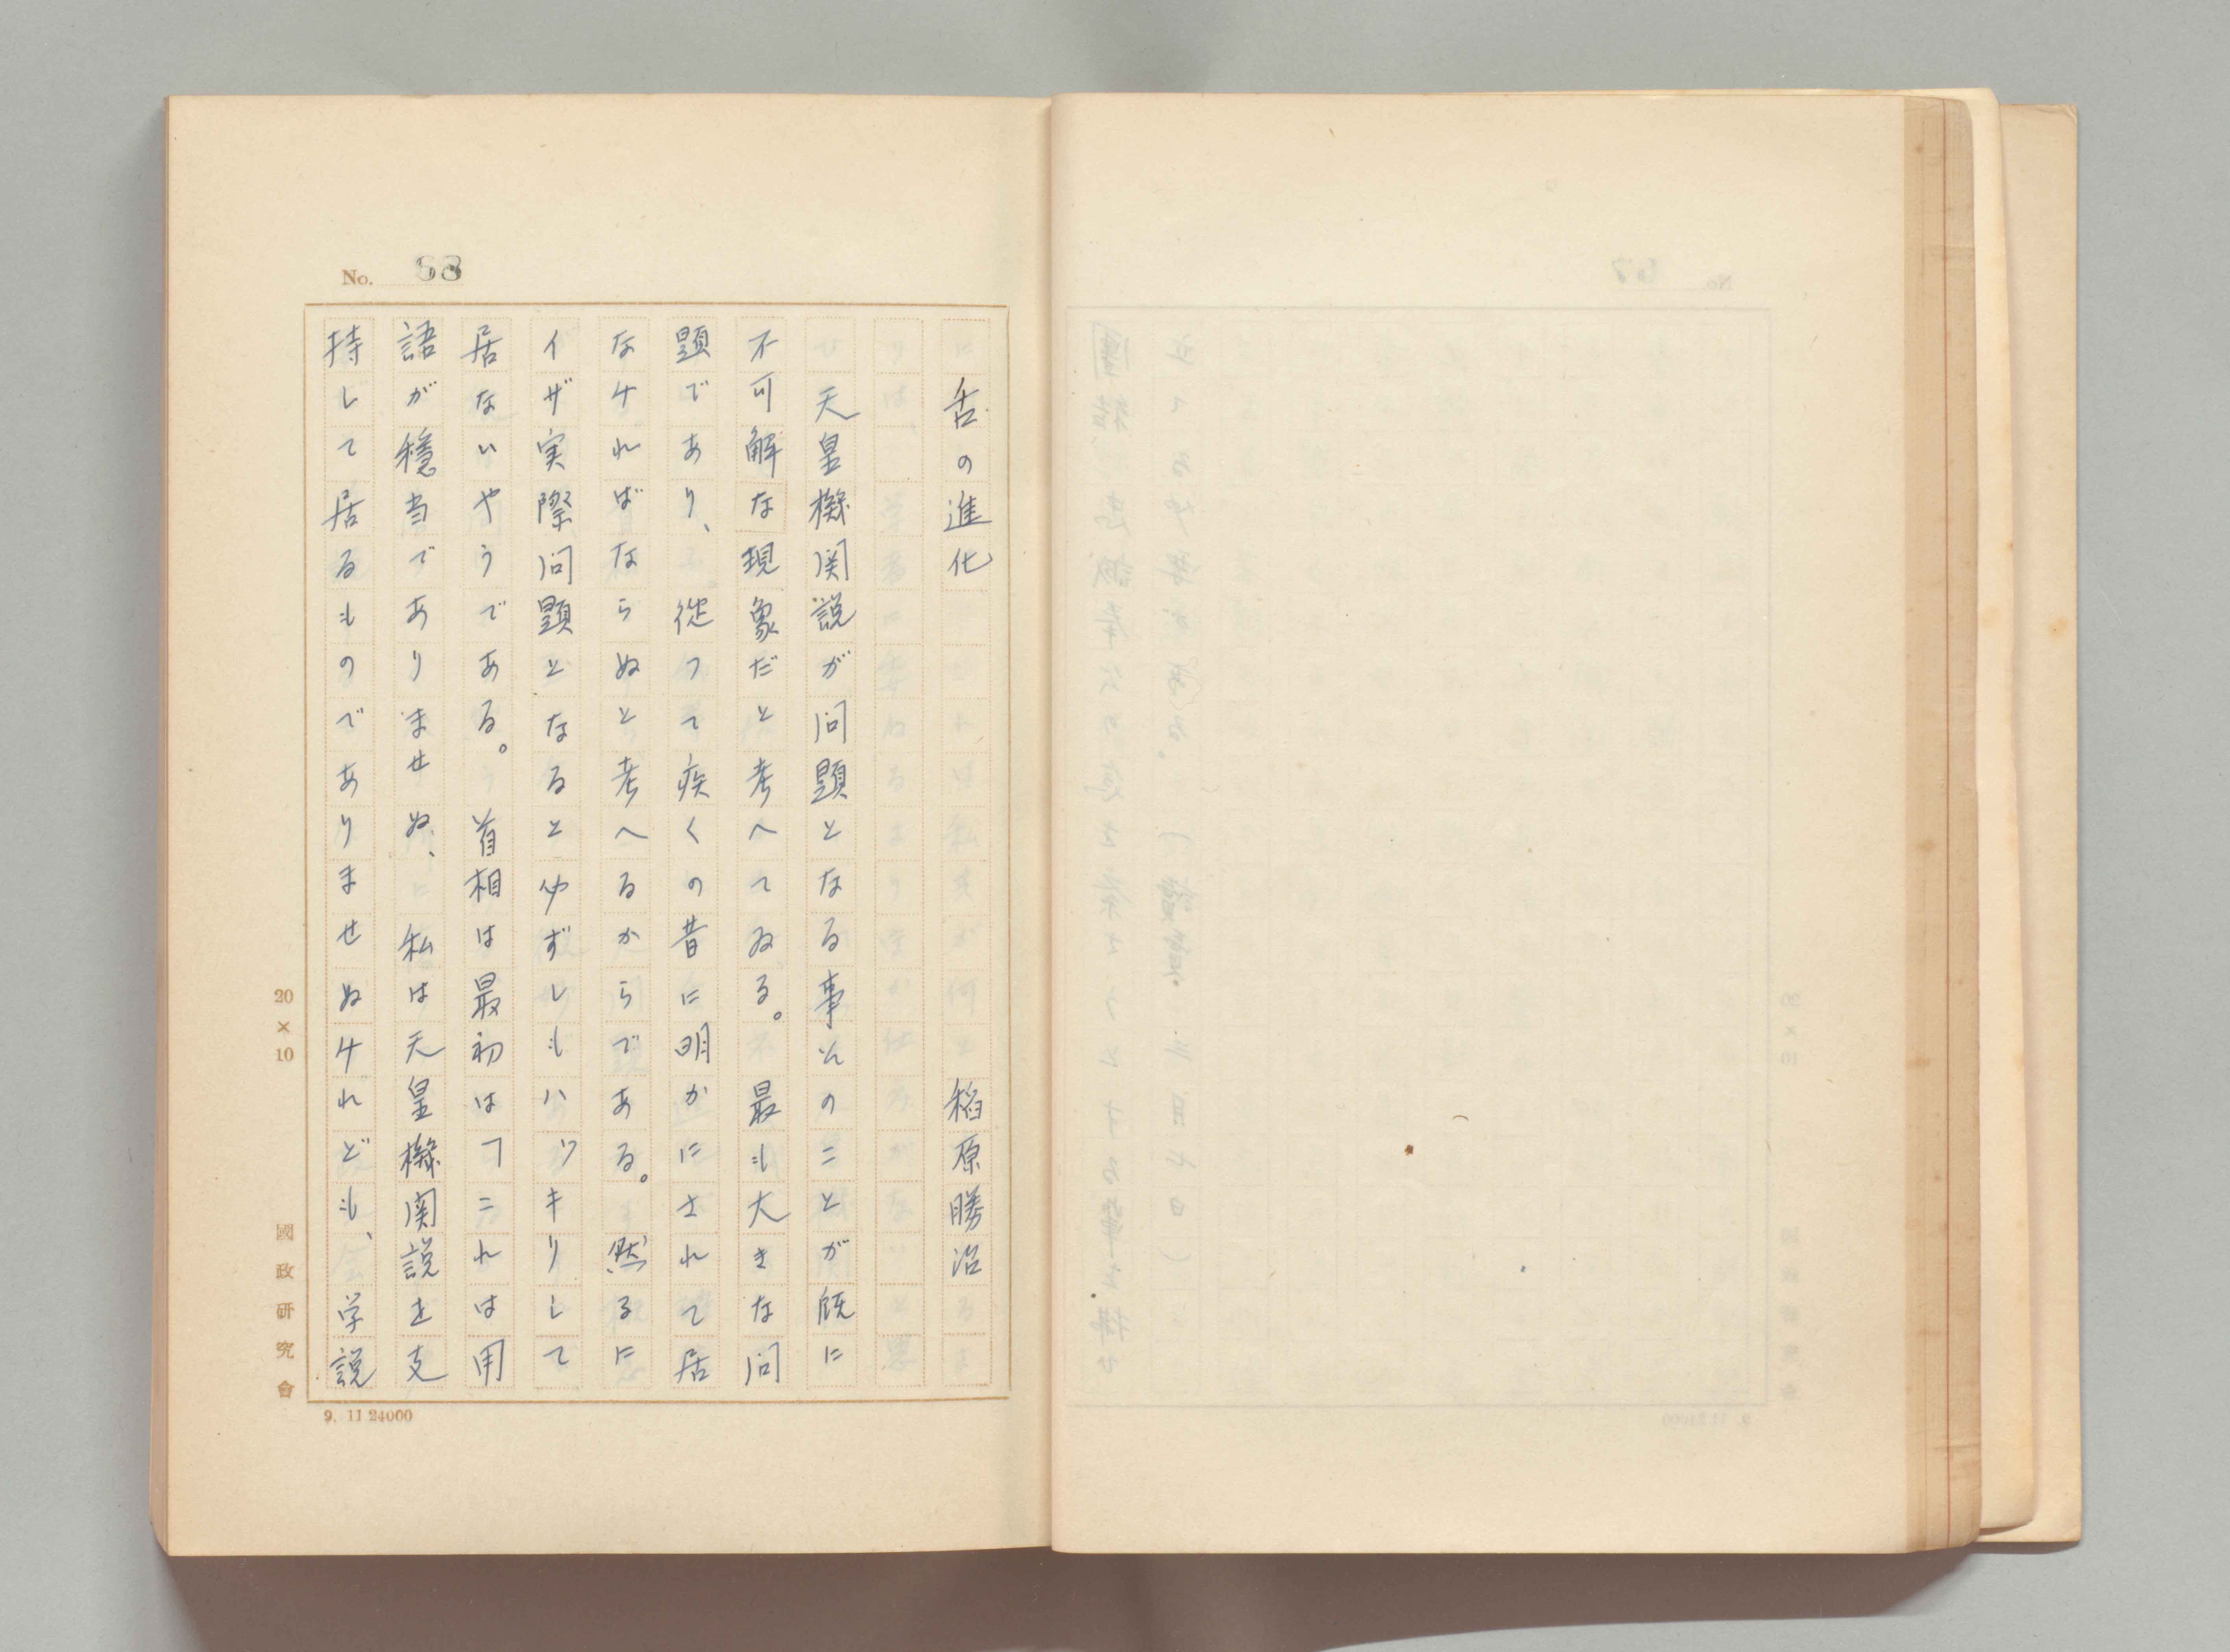 No. 68
舌の進化　稻原勝治
天皇機関説が問題となる事そのことが既に
不可解な現象だと考へてゐる。最も大きな問
題であり、従つて疾くの昔に明かにされて居
なければならぬと考へるからである。然るに
イザ実際問題となると必ずしもハツキリして
居ないやうである。首相は最初は「これは用
語が穏当でありませぬ、私は天皇機関説を支
持して居るものでありませぬけれども、学説
20×10
國政研究會
9. 11 24000